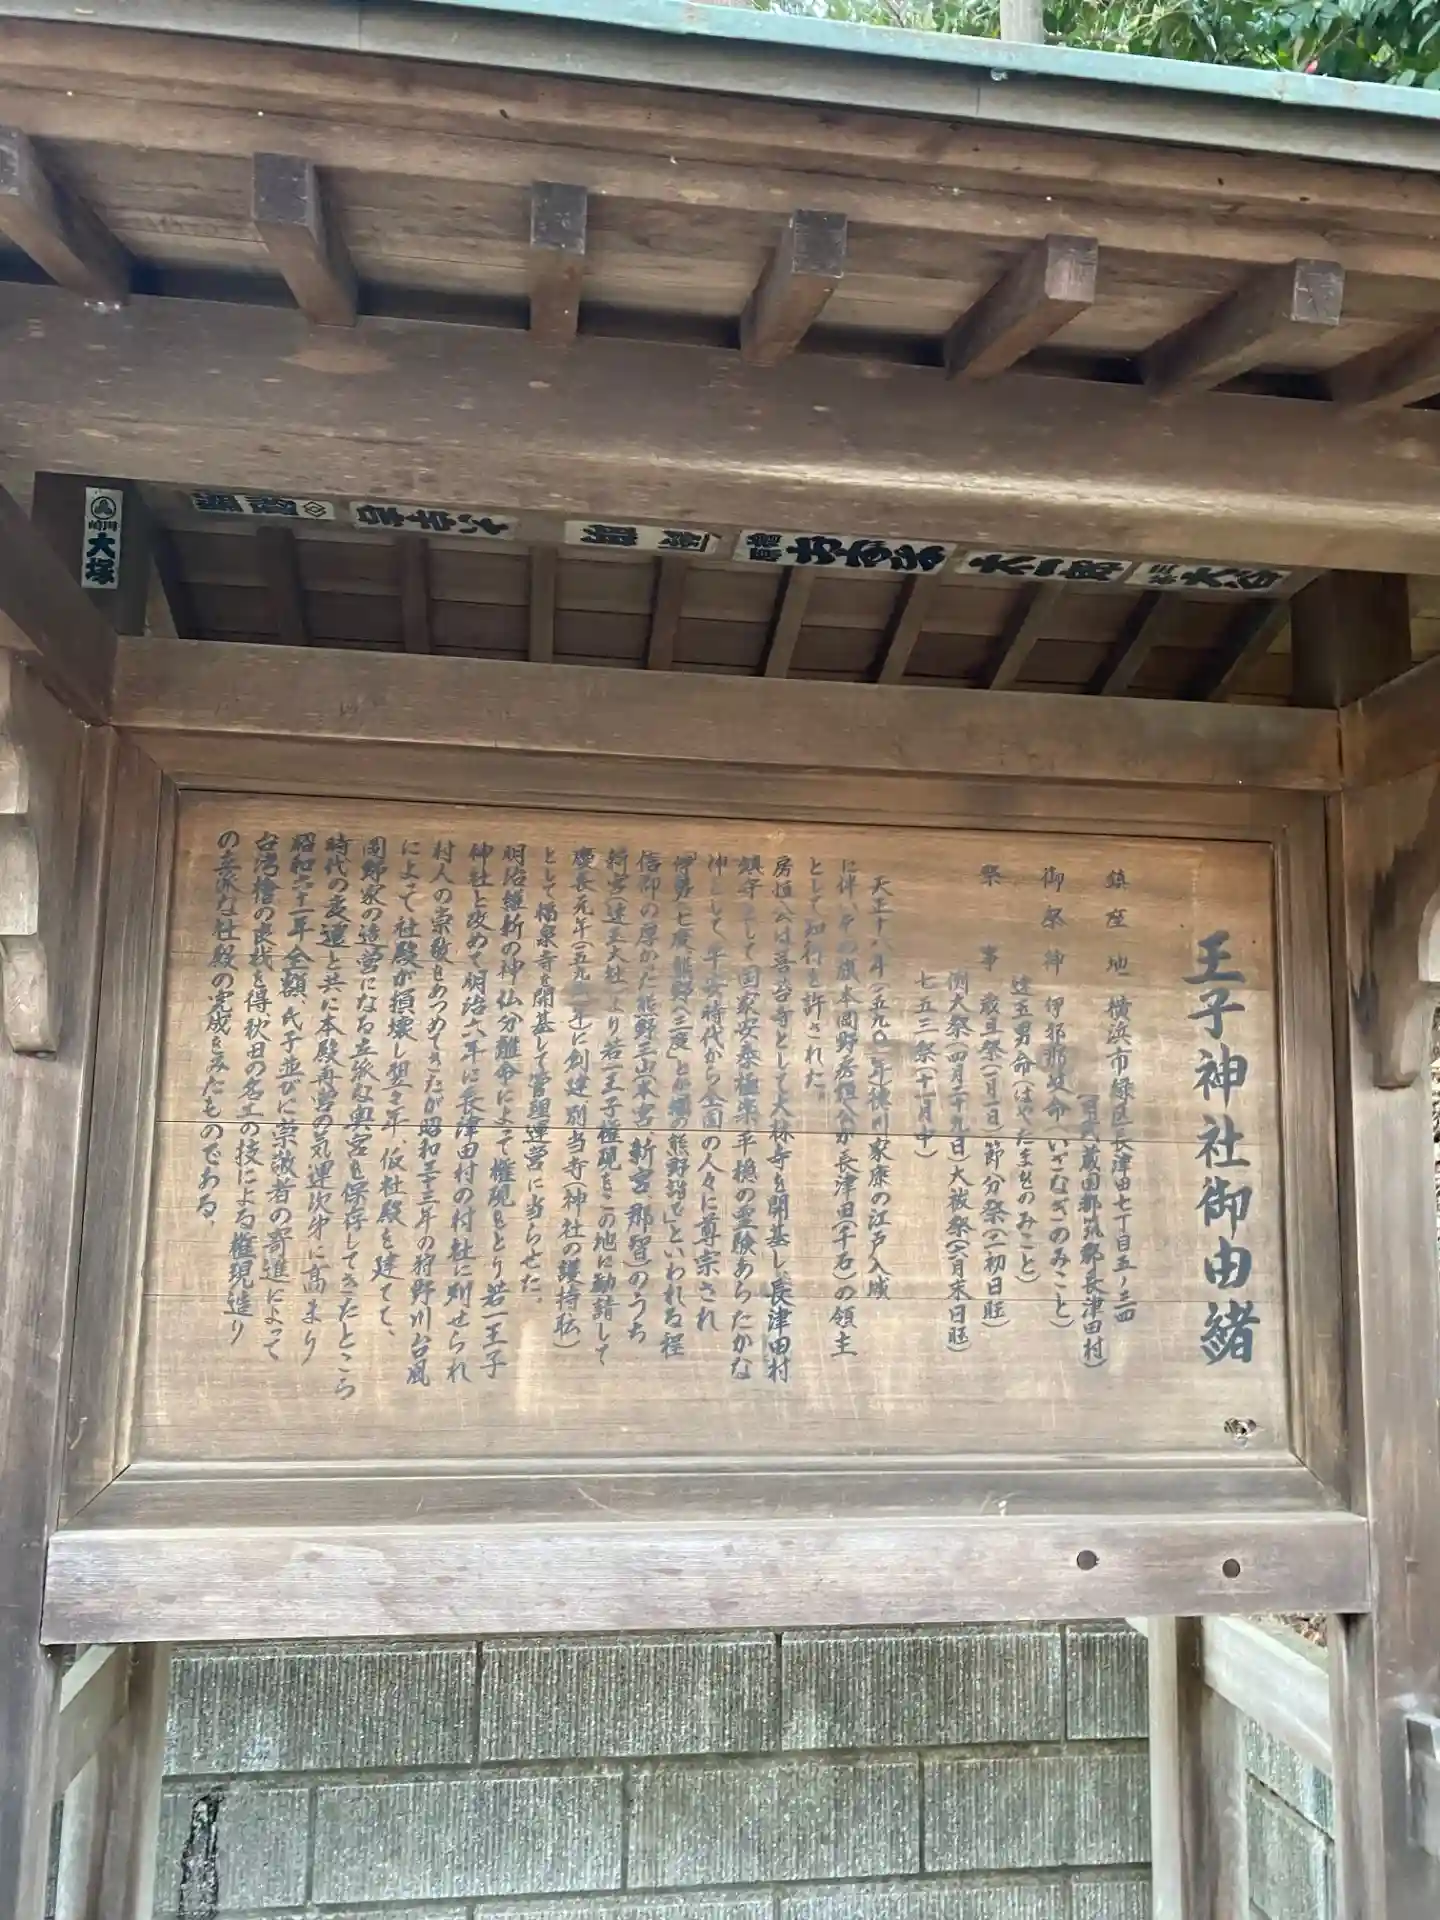 王子神社御由緒
鎮座地 横浜市緑区長津田七丁目五ノ三四
(旧武蔵国都筑郡長津田村)
御祭神 伊邪那岐命(いざなぎのみこと)
速玉男命(はやたまをのみこと)
祭事 歳旦祭(一月一日)節分祭(二初日旺)
例大祭(四月二十九日)大祓祭(六月末日旺)
七五三祭(十一月中)
天正十八年(一五九〇)年徳川家康の江戸入城
に伴い、その旗本岡野房恒公が長津田(千石)の領主
として知行を許された。
房恒公は菩提寺として大林寺を開基し、長津田村
鎮守として国家安泰極楽平穏の霊験あらたかな
神として、平安時代から全国の人々に尊宗され
「伊勢へ七度、熊野へ三度」とか「蟻の熊野詣で」といわれる程
信仰の厚かった熊野三山(本宮、新宮、那智)のうち
新宮(速玉大社)より若一王子権現をこの地に勧請して
慶長元年(一五九六年)に創建、別当寺(神社の護持転)
として福泉寺を開基して管理運営に当らせた。
明治維新の神仏分離令によって権現をとり若一王子
神社と改めて明治六年に長津田村の村社に列せられ
村人の崇敬をあつめてきたが昭和三十三年の狩野川台風
によって社殿が損壊し翌々年、仮社殿を建てて、
岡野家の造営になる立派な奥宮を保存してきたところ
時代の変遷と共に本殿再営の気運次第に高まり
昭和六十一年金額、氏子並びに崇敬者の寄進によって
台湾檜の良材を得、秋田の名工の技による権現造り
の立派な社殿の完成をみたものである。
大塚